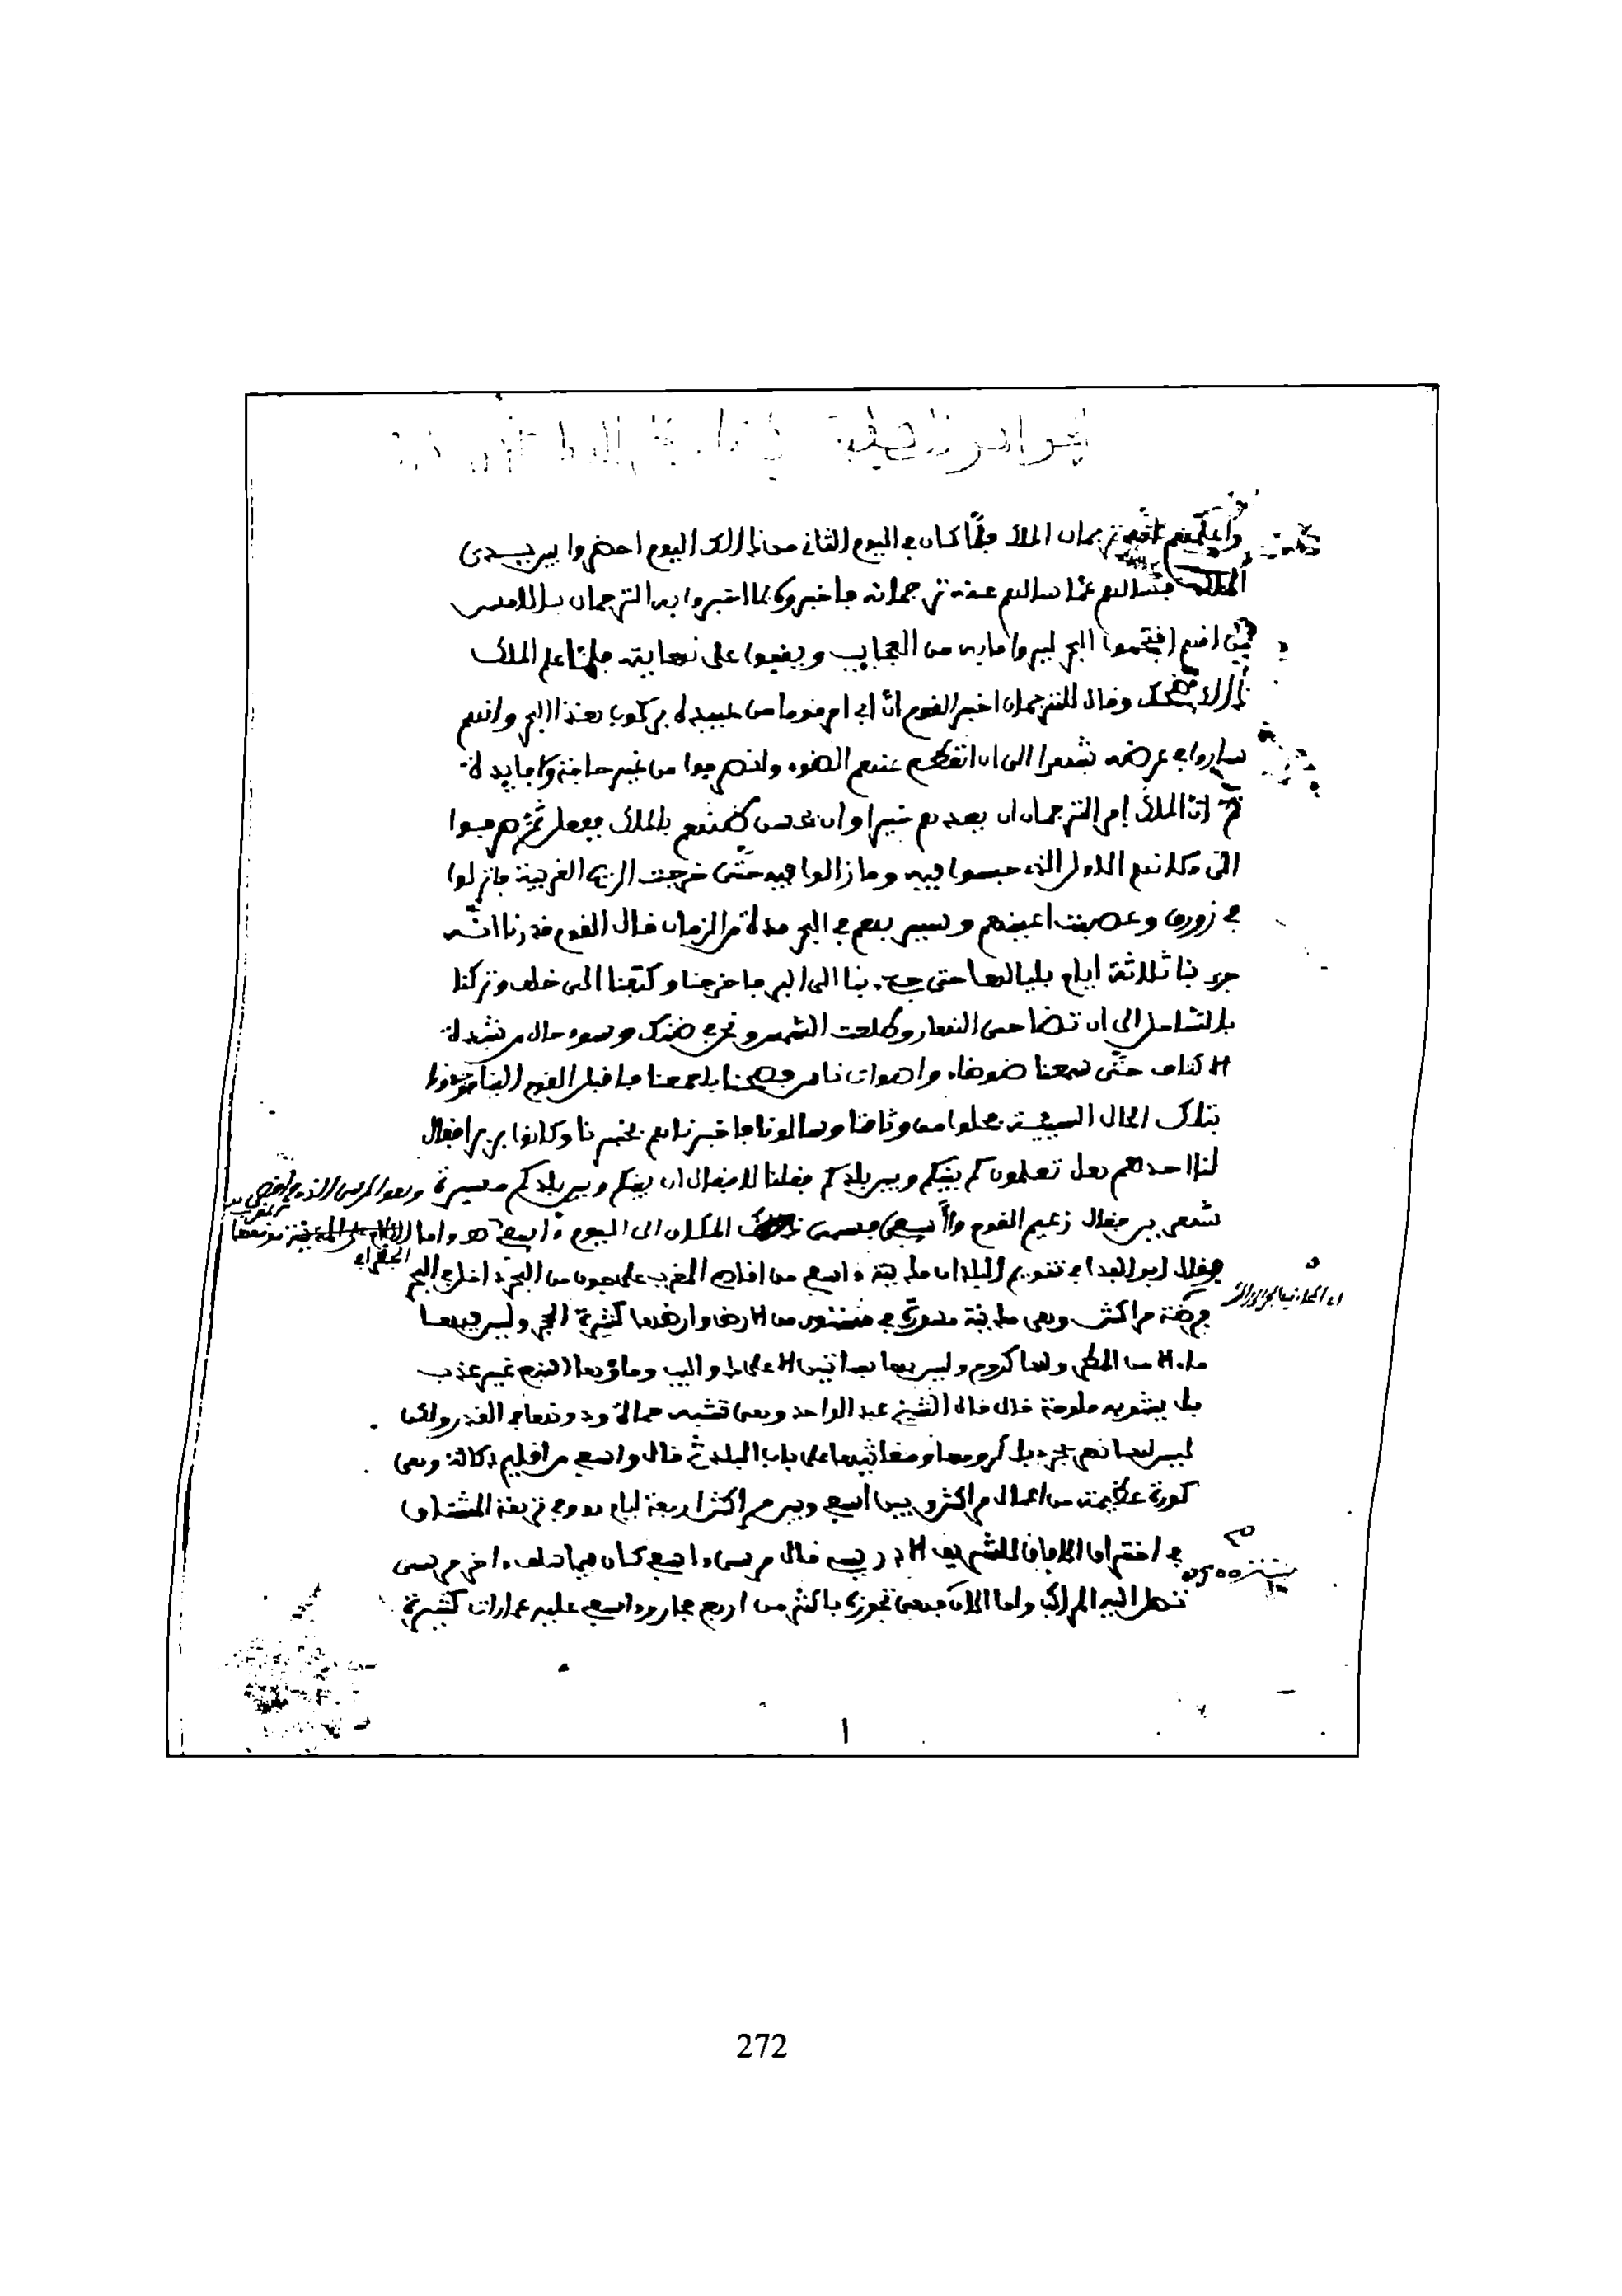 الجواهر الصفية في تاريخ الديار
واعلمهم انه ترجمان الملك فلما كان في اليوم الثاني من ذالك اليوم احضروا بين يدي
الملك فسالهم عما سالهم عنه ترجمانه فاخبروه بما اخبروا به الترجمان بالامس
من انهم اقتحموا البحر ليروا ما به من العجايب ويقفوا على نهايته فلما علم الملك
ذالك ضحك وقال للترجمان اخبر القوم ان ابي امر قوما من عبيده بركوب هذا البحر وانهم
ساروا في عرضه شهرا الى ان انقطع عنهم الضوء وانصرفوا من غير حاجة ولا فايدة
ثم ان الملك امر الترجمان ان يعدهم خيرا وان يحسن ظنهم بالملك ففعل ثم صرفوا
الى مكانهم الاول الذي حبسوا فيه وما زالوا فيه حتى خرجت الريح الغربية فانزلوا
في زورق وعصبت اعينهم وسير بهم في البحر مدة من الزمان قال القوم قدرنا انه
جرى بنا ثلاثة ايام بلياليها حتى جيء بنا الى البر فاخرجنا وكتفنا الى خلف وتركنا
بالساحل الى ان تضاحى النهار وطلعت الشمس ونحن في ضنك وسوء حال من شدة
الكتاف حتى سمعنا ضوضاء واصوات ناس فصحنا باجمعنا فاقبل القوم الينا فوجدونا
بتلك الحال السيئة فحلوا من وثاقنا وسالونا فاخبرناهم بخبرنا وكانوا برابر فقال
لنا احدهم هل تعلمون كم بينكم وبين بلدكم فقلنا لا فقال ان بينكم وبين بلدكم مسيرة
شهرين فقال زعيم القوم وا اسفي فسمي ذلك المكان الى اليوم اسفي هـ واما
وهو المرسى الذي في اقصى المغرب
فقال ابو الفدا في تقويم البلدان مدينة واسفي من اقاصي المغرب على جون من البحر داخل في البحر
فرضة مراكش وهي مدينة مسورة في مستو من الارض وارضها كثيرة الحجر وليس فيها
ماء الا من المطر ولها كروم وليس بها بساتين الا على دواليب وماؤها النبع غير عذب
بل يشوبه ملوحة قال قال الشيخ عبد الواحد وهي تشبه حماة ودونها في القدر ولكن
ليس لها نهر يجري بل كرومها ومقاثيها على باب البلد ثم قال واسفي من اقليم دكالة وهي
كورة عظيمة من اعمال مراكش وبين اسفي وبين مراكش اربعة ايام هـ وفي نزهة المشتاق
في اختراق الافاق للشريف الادريسي قال مرسى واسفي كان فيما سلف اخر مرسى
تصل اليه المراكب واما الان فهي تجوزه باكثر من اربع مجار واسفي عليه عمارات كثيرة
272